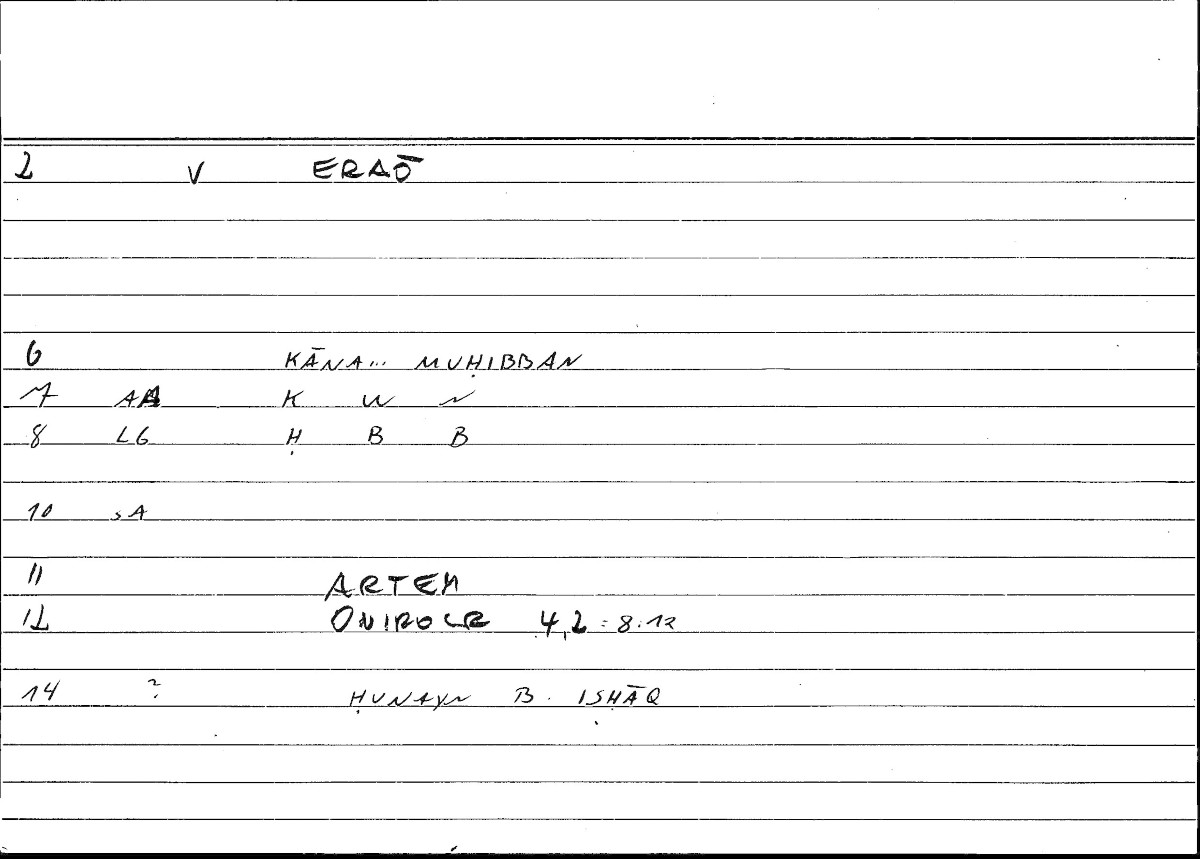 2 V ERAŌ
6 KĀNA... MUḤIBBAN
7 AA K W N
8 LG Ḥ B B
10 sA
11 ARTEM
12 ONIROCR 4,2 : 8.12
14 ? ḤUNAYN B. ISḤĀQ